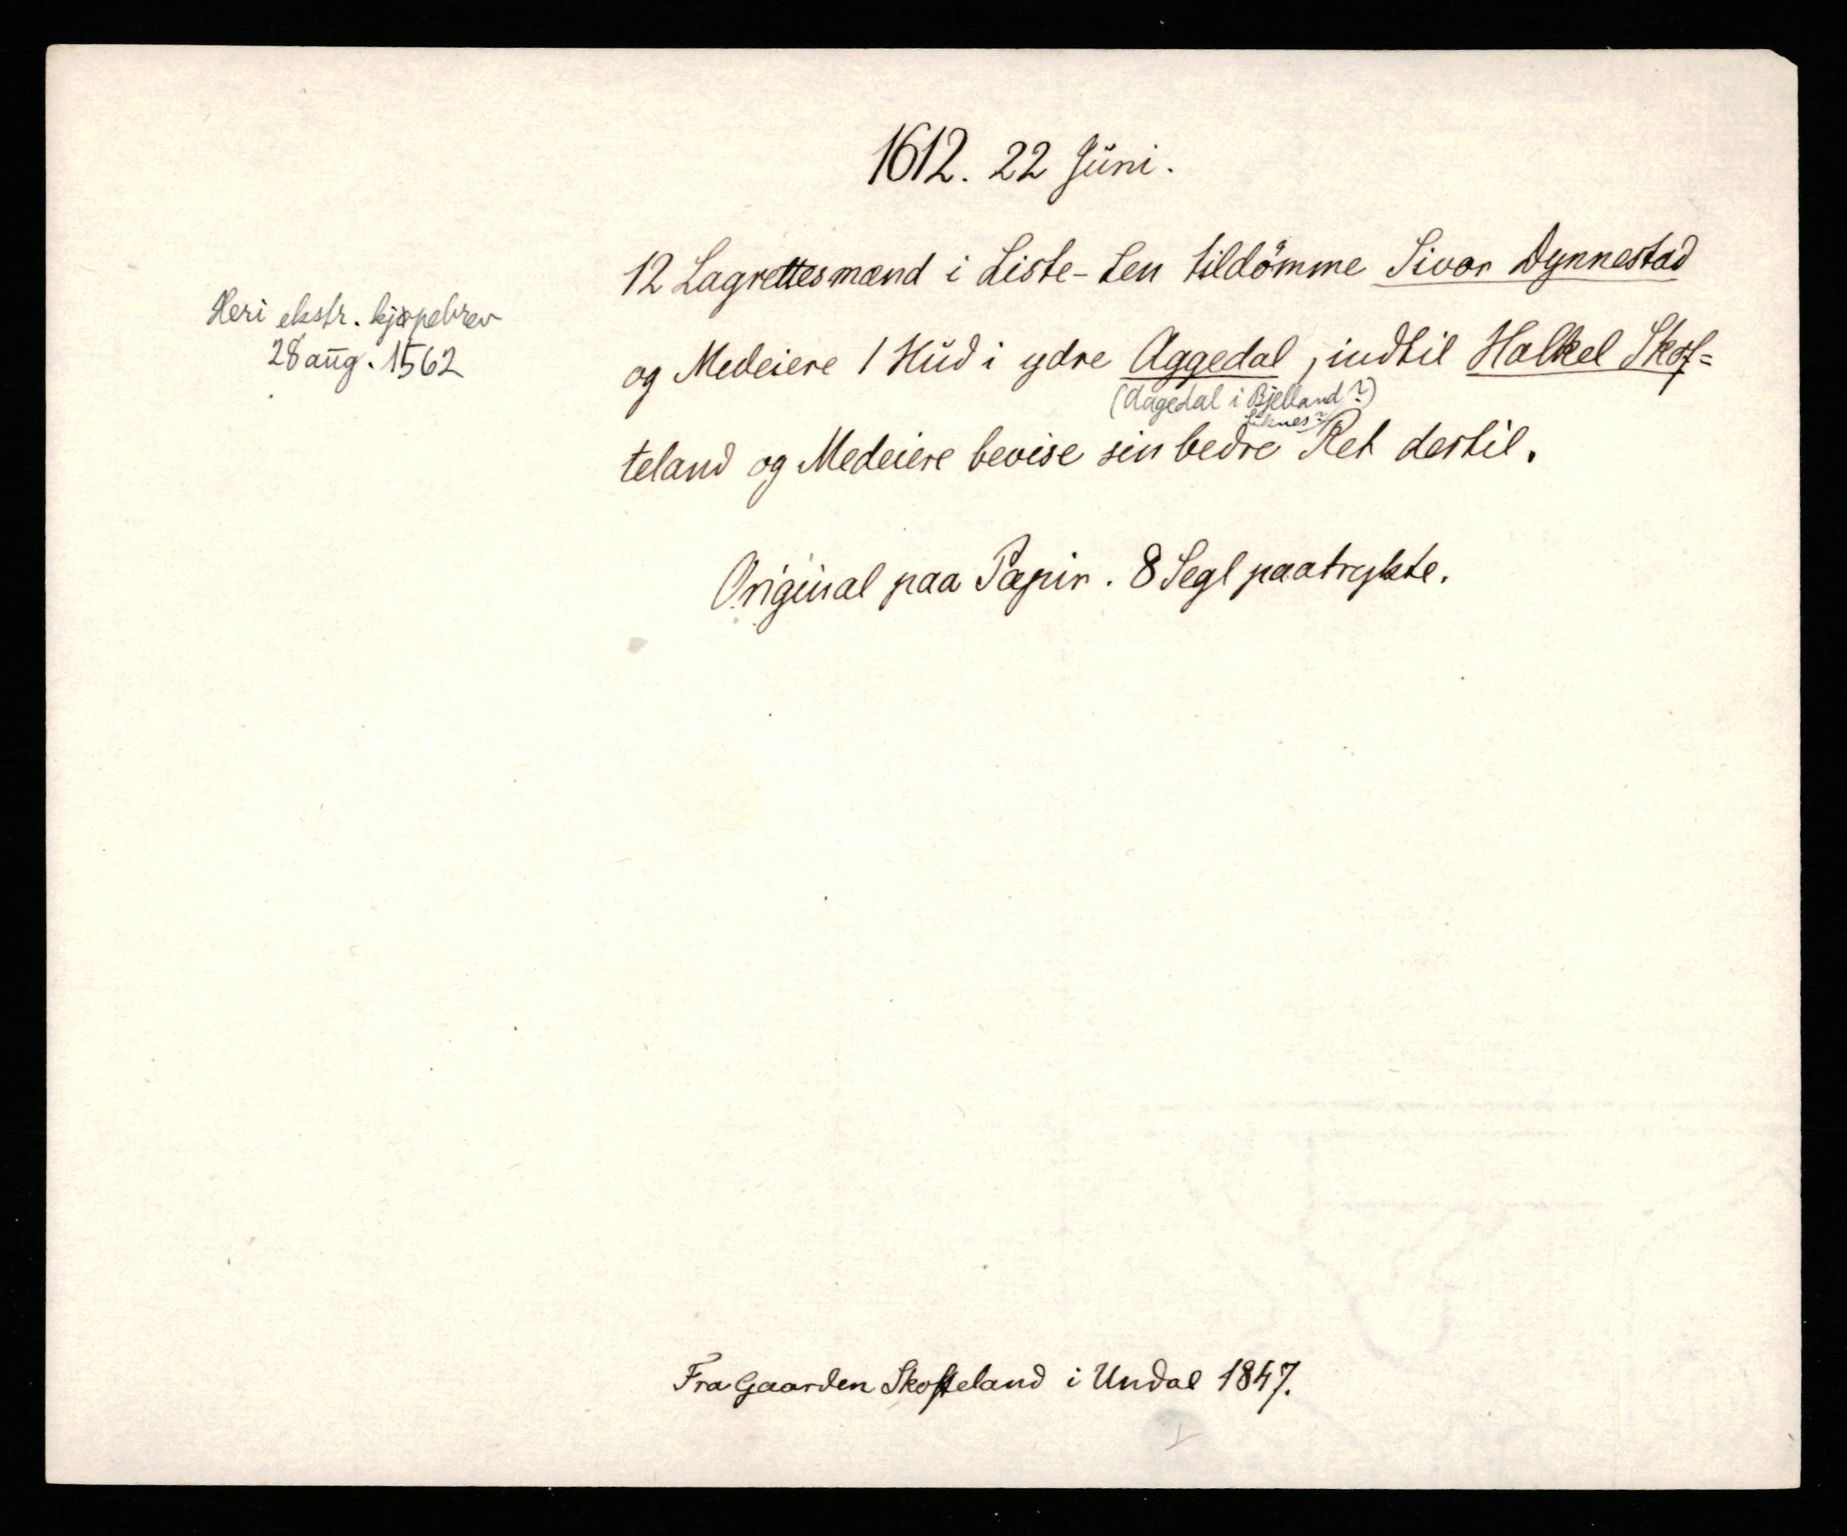 1612. 22 Juni.
12 Lagrettesmænd i Liste-Len tildömme Sivor Dynnestad
og Medeiere 1 Hud i ydre Aggedal, indtil Halkel Skof=
(Aagedal i Bjelland?)
Liknes?
teland og Medeiere bevise sin bedre Ret dertil.
Original paa Papir. 8 Segl paatrykte.
Heri ekstr. kjøpebrev
28 aug. 1562
Fra Gaarden Skofteland i Undal 1847.